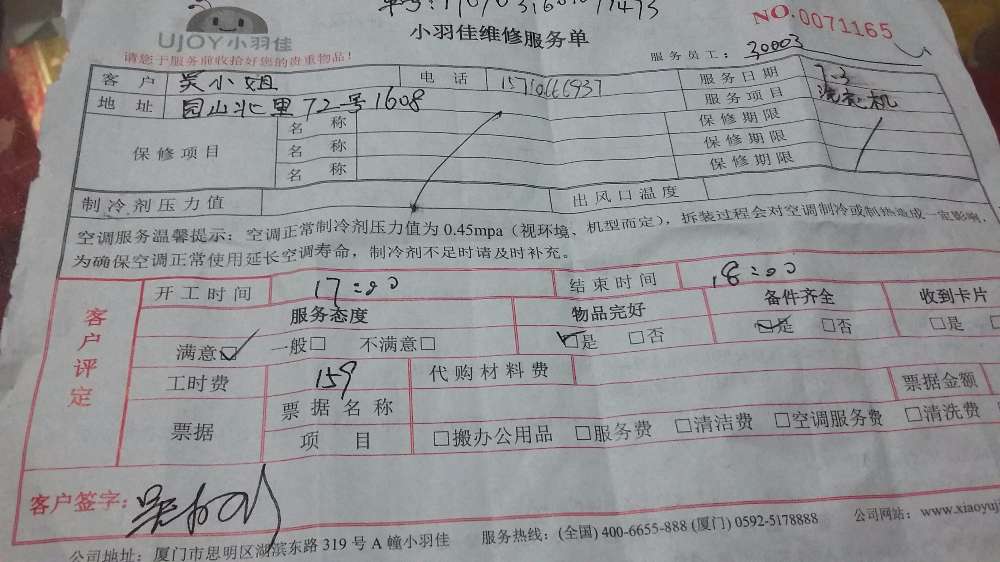 小羽佳维修服务单
NO.0071165
UJOY小羽佳
请您于服务前收拾好您的贵重物品!
服务员工: 30003
客户 吴小姐 电话 服务日期 7.3
地址 园山北里72号1608 服务项目 洗衣机
保修项目
名称 保修期限
名称 保修期限
名称 保修期限
制冷剂压力值 出风口温度
空调服务温馨提示: 空调正常制冷剂压力值为0.45mpa(视环境、机型而定), 拆装过程会对空调制冷或制热造成一定影响,
为确保空调正常使用延长空调寿命, 制冷剂不足时请及时补充。
客户评定
开工时间 17:00 结束时间 18:00
服务态度 物品完好 备件齐全 收到卡片
满意☑ 一般□ 不满意□ ☑是 □否 ☑是 □否 □是
工时费 159 代购材料费 票据金额
票据
票据名称
项目 □搬办公用品 □服务费 □清洁费 □空调服务费 □清洗费
客户签字:
公司地址: 厦门市思明区湖滨东路319号A幢小羽佳 服务热线: (全国) 400-6655-888 (厦门) 0592-5178888 公司网站: www.xiaoyuj